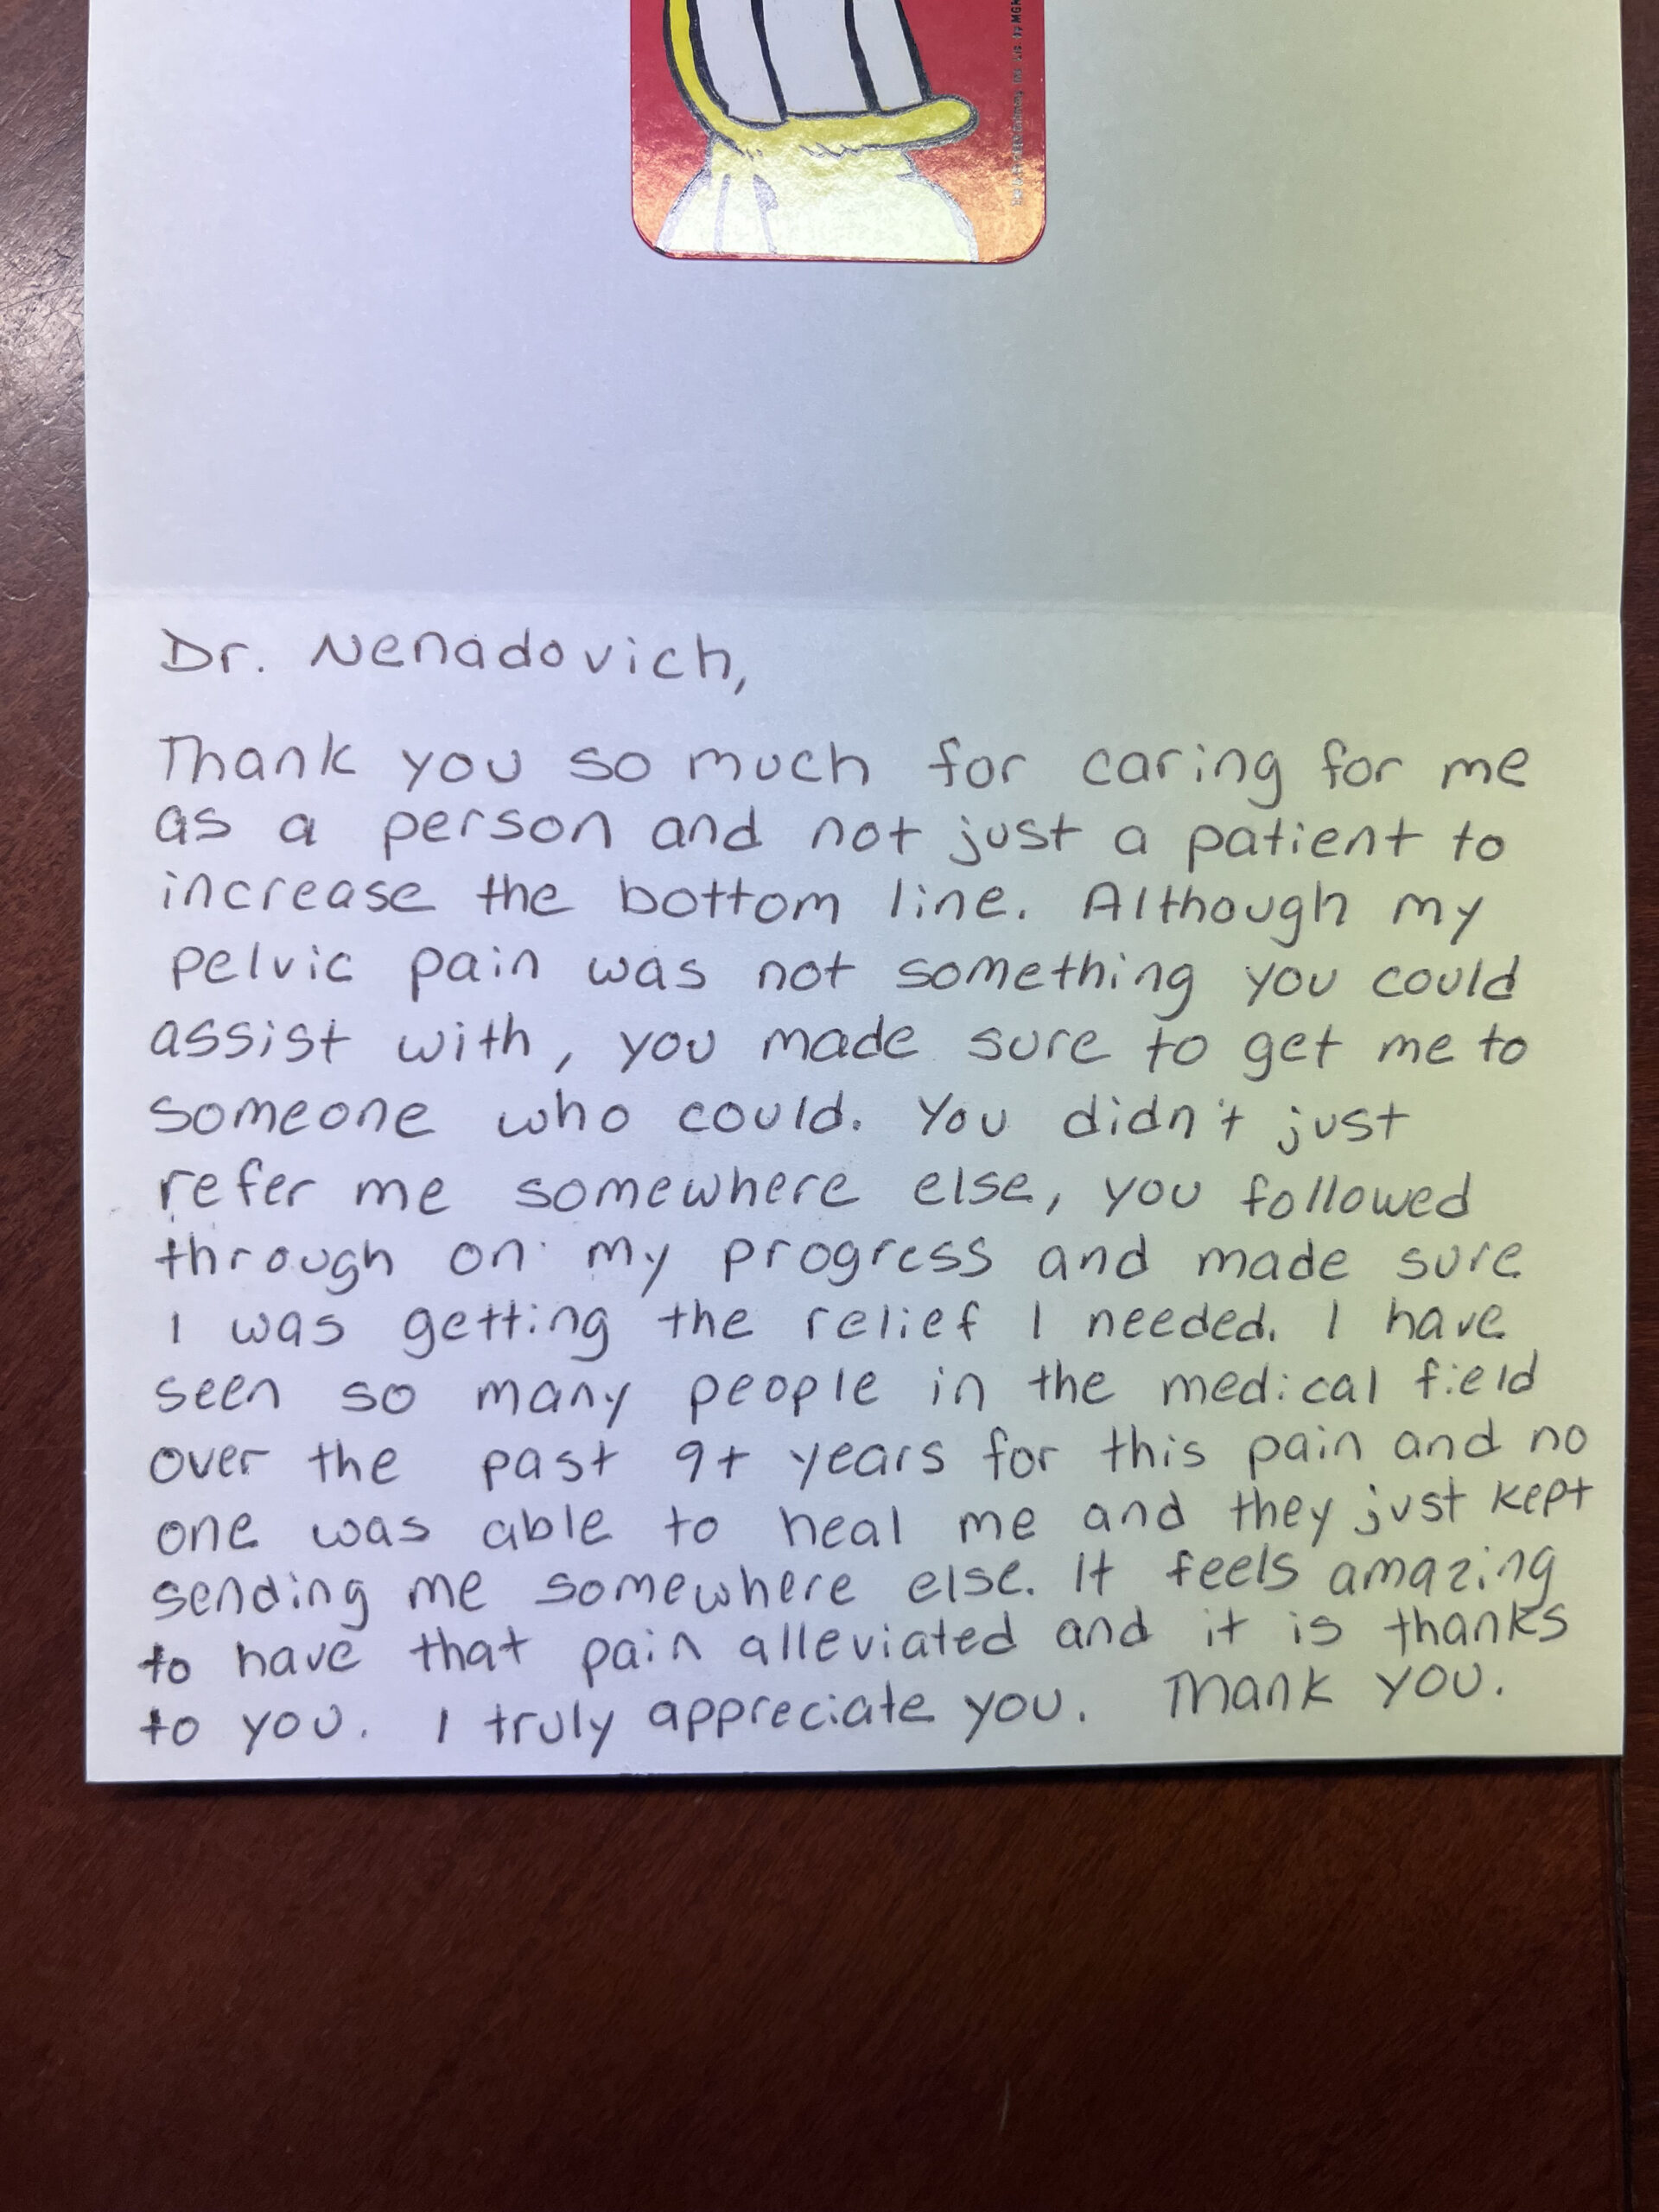 Dr. Nenadovich,
Thank you so much for caring for me
as a person and not just a patient to
increase the bottom line. Although my
pelvic pain was not something you could
assist with, you made sure to get me to
someone who could. You didn't just
refer me somewhere else, you followed
through on my progress and made sure
I was getting the relief I needed. I have
seen so many people in the medical field
over the past 9+ years for this pain and no
one was able to heal me and they just kept
sending me somewhere else. It feels amazing
to have that pain alleviated and it is thanks
to you. I truly appreciate you. Thank you.